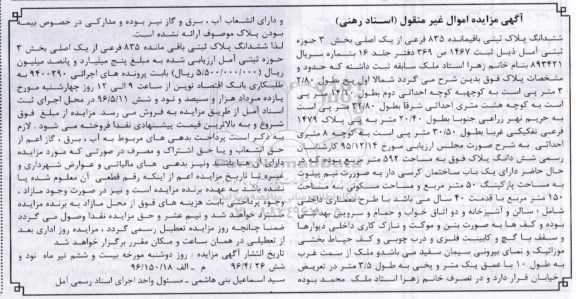 آگهی مزایده اموال غیر منقول (اسناد رهنی)
ششدانگ پلاک ثبتی باقیمانده ۸۳۵ فرعی از یک اصلی بخش ۳ حوزه
ثبتی آمل ذیل ثبت ۱۴۶۷ ص ۳۶۹ دفتر جلد ۱۶ بشماره سریال
۸۹۳۴۲۱ بنام خانم زهرا استاد ملک سابقه ثبت داشته که حدود و
مشخصات پلاک فوق بدین شرح می گردد شمالا اول پخ بطول ۲/۸۰
متر پی است به کوچهبه کوچه احداثی دوم بطول ۱۴/۱۰ متر پی
است به کوچه هشت متری احداثی شرقا بطول ۲۷/۸۰ متر پی است
به حریم نهر زراعی جنوبا بطول ۳۰/۴۰ متر به پی پلاک ۱۴۷۹
فرعی تفکیکی غربا بطول ۳۰/۵۰ متر پی است به کوچه ۸ متری
احداثی به شرح صورت مجلس ارزیابی مورخ ۹۵/۱۲/۱۴ کارشناسان
رسمی شش دانگ پلاک فوق به مساحت ۵۹۲ متر مربع بوده و در
حال حاضر دارای یک باب ساختمان کرسی دار به صورت نیم پیلوت
به مساحت پارکینگ ۵۰ متر مربع و مساحت مسکونی به مساحت
۱۵۰ متر مربع با قدمت ۴۰ سال می باشد با طرح معماری داخلی
شامل : سالن و آشپزخانه و دو اتاق خواب و حمام و سرویس بهداشتی
بوده و کف ها به صورت بتن و موکت و نازک کاری داخلی دیوارها
و سقف با گچ و کابینت فلزی و درب چوبی و کف حیاط بخشی
موزائیک و نمای بیرونی سیمان سفید می باشدو ملک از سمت غرب
به طول ۱۰ با عمق یک متر و پخی به طول ۳/۵ متر در تعریض
خیابان قرار دارد و در تصرف خانم زهرا استاد ملک محمد بوده
و دارای انشعاب آب ، برق و گاز نیز بوده و مدارکی در خصوص بیمه
بودن پلاک موصوف ارائه نشده است.
لذا ششدانگ پلاک ثبتی باقی مانده ۸۳۵ فرعی از یک اصلی بخش ۳
حوزه ثبتی آمل ارزیابی شده به مبلغ پنج میلیارد و پانصد میلیون
ریال (۵/۵۰۰/۰۰۰/۰۰۰ ریال) بابت پرونده های اجرائی ۹۴۰۰۲۹۰ به
طلبکاری بانک اقتصاد نوین از ساعت ۹ الی ۱۲ روز چهارشنبه مورخ
یازده مرداد هزار و سیصد و نود و شش ۹۶/۵/۱۱ در محل اجرای ثبت
اسناد آمل از طریق مزایده به فروش می رسد. مزایده از مبلغ فوق
شروع و به بالاترین قیمت پیشنهادی نقدا فروخته می شود . لازم
به ذکر است پرداخت بدهی های مربوط به آب ، برق ، گاز اعم از
حق انشعاب و یا حق اشتراک و مصرف در صورتی که مورد مزایده
دارای آن ها باشد و نیز بدهی های مالیاتی و عوارض شهرداری و
غیره تا تاریخ مزایده اعم از اینکه رقم قطعی آن معلوم شده یا
نشده باشد به عهده برنده مزایده است و نیز در صورت وجود مازاد ،
وجوه پرداختی بابت هزینه های فوق از محل مازاد به برنده مزایده
مسترد خواهد شد و نیم عشر و حق مزایده نقدا وصول می گردد
ضمنا چنانچه روز مزایده تعطیل رسمی گردد ، مزایده روز اداری بعد
از تعطیلی در همان ساعت و مکان مقرر برگزار خواهد شد
تاریخ انتشار آگهی مزایده : روز دوشنبه مورخه بیست و ششم تیر ماه نود و
شش ۹۶/۴/۲۶ م - الف ۹۶/۱۵۰/۱۸
سید اسماعیل بنی هاشمی ـ مسئول واحد اجرای اسناد رسمی آمل